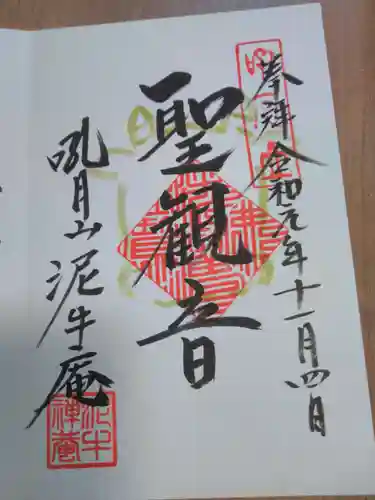 奉拝 令和元年十一月四日
聖観音
吼月山 泥牛庵
泥牛禅庵